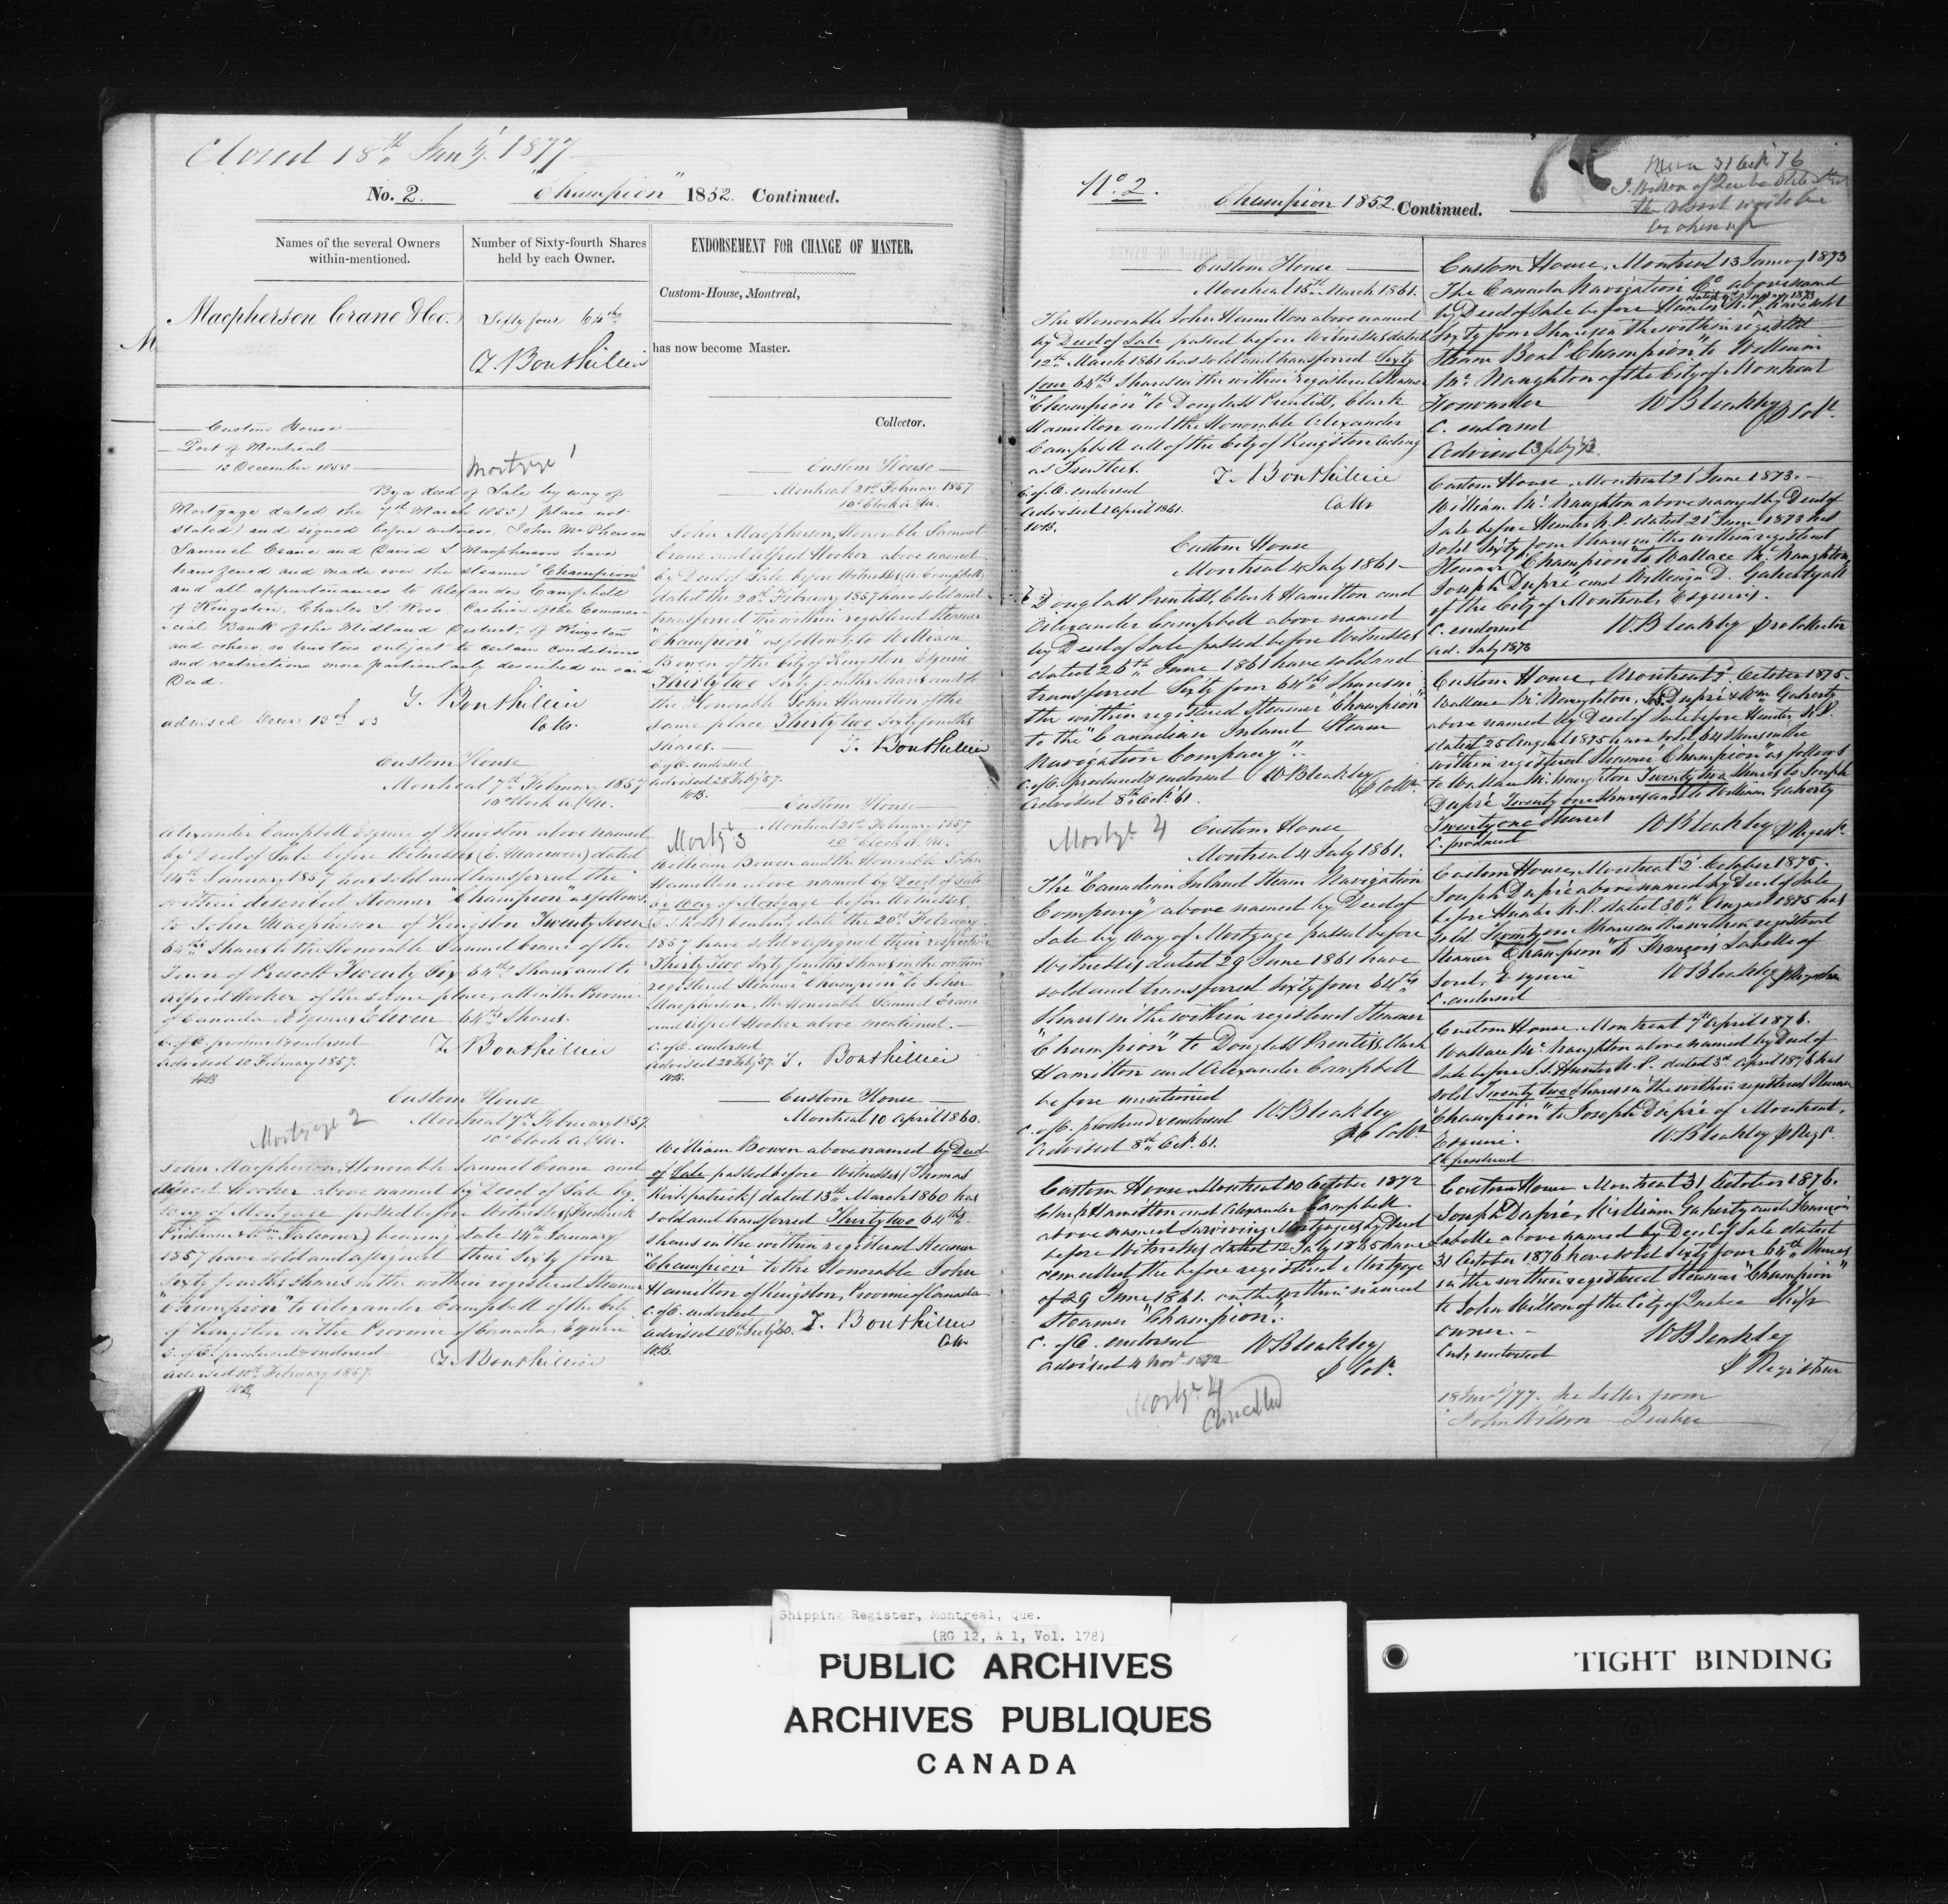 Closed 18th Jan'y. 1877
No. 2. "Champion" 1852. Continued.
Names of the several Owners within-mentioned.
Number of Sixty-fourth Shares held by each Owner.
Macpherson Crane & Co.
Sixty four 64ths
T. Bouthillier
Custom House
Port of Montreal
13 December 1853
Mortgage 1
By a deed of Sale by way of
Mortgage dated the 7th March 1853 (place not
stated) and signed before witness, John McPherson
Samuel Crane and David L Macpherson have
transfered and made over the steamer "Champion"
and all appurtenances to Alexander Campbell
of Kingston, Charles S. Ross, Cashier of the Commer-
cial Bank of the Midland District, of Kingston
and others, as trustees subject to certain conditions
and restrictions more particularly described in said
Deed.
T. Bouthillier
Collr.
advised Decr 13th 53
Custom House
Montreal 7th February 1857
10 o'clock A.M.
Alexander Campbell Esquire of Kingston above named
by Deed of Sale before Witnesses dated
14th January 1857 has sold and transferred the
within described Steamer "Champion" as follows
to John Macpherson of Kingston Twenty Seven
64ths Shares to the Honorable Samuel Crane of the
Town of Prescott Twenty Six 64ths Shares and to
Alfred Hooker of the same place, all in the Province
of Canada, Esquires Eleven 64ths Shares.
C. of O. produced & endorsed
T. Bouthillier
advised 10 February 1857.
WB
Custom House
Montreal 7th February 1857.
10 o'clock A.M.
Mortgage 2
John Macpherson, Honorable Samuel Crane and
Alfred Hooker above named by Deed of Sale by
Way of Mortgage passed before Witnesses (Frederick
) bearing date 14th January
1857 have sold and assigned their Sixty four
Sixty fourths shares in the within registered Steamer
"Champion" to Alexander Campbell of the City
of Kingston in the Province of Canada, Esquire
C. of O. produced & endorsed
T. Bouthillier
advised 10th February 1857.
WB
ENDORSEMENT FOR CHANGE OF MASTER.
Custom-House, Montreal,
has now become Master.
Collector.
Custom House
Montreal 21st February 1857
10 o'clock A.M.
John Macpherson, Honorable Samuel
Crane and Alfred Hooker above named
by Deed of Sale before Witnesses (A. Campbell)
dated the 20th February 1857 have sold and
transferred the within registered Steamer
"Champion" as follows to William
Bowen of the City of Kingston Esquire
Thirty two Sixty fourths shares and to
the Honorable John Hamilton of the
same place Thirty two Sixty fourths
shares.
T. Bouthillier
C. of O. endorsed
advised 28 Feby 57.
WB.
Custom House
Montreal 21st February 1857
10 o'clock A.M.
Mortg 3
William Bowen and the Honorable John
Hamilton above named by Deed of Sale
by Way of Mortgage before Witnesses,
bearing date the 20th February
1857 have sold & assigned their respective
Thirty Two Sixty fourths shares in the within
registered Steamer "Champion" to John
Macpherson, the Honorable Samuel Crane
and Alfred Hooker above mentioned.
C. of O. endorsed
advised 28 Feby 57. T. Bouthillier
WB.
Custom House
Montreal 10 April 1860.
William Bowen above named by Deed
of Sale passed before Witnesses (Thomas
Kirkpatrick) dated 13th March 1860 has
sold and transferred Thirty two 64ths
shares in the within registered Steamer
"Champion" to the Honorable John
Hamilton of Kingston, Province of Canada
C. of O. endorsed
advised 10th July 60. T. Bouthillier
WB. Collr
No. 2. Champion 1852. Continued.
31 Oct 76
J. Wilson of Quebec
the vessel
broken up
Custom House
Montreal 15th March 1861.
The Honorable John Hamilton above named
by Deed of Sale passed before Witnesses dated
12th March 1861 has sold and transferred Sixty
four 64ths Shares in the within registered Steamer
"Champion" to Douglass Prentiss, Clark
Hamilton and the Honorable Alexander
Campbell all of the City of Kingston Acting
as Trustees.
T. Bouthillier
C. of O. endorsed
Collr
advised 1 April 1861.
WB.
Custom House
Montreal 4 July 1861
Douglass Prentiss, Clark Hamilton and
Alexander Campbell above named
by Deed of Sale passed before Witnesses
dated 26th June 1861 have sold and
transferred Sixty four 64ths Shares in
the within registered Steamer "Champion"
to the "Canadian Inland Steam
Navigation Company".
C. of O. produced & endorsed W Bleakley
p Collr
advised 8th Oct. 61.
Mortge 4
Custom House
Montreal 4 July 1861.
The "Canadian Inland Steam Navigation
Company" above named by Deed of
Sale by Way of Mortgage passed before
Witnesses dated 29 June 1861 have
sold and transferred Sixty four 64ths
Shares in the within registered Steamer
"Champion" to Douglass Prentiss, Clark
Hamilton and Alexander Campbell
before mentioned
C. of O. produced & endorsed W. Bleakley
p Collr
advised 8th Oct. 61.
Custom House Montreal 10 October 1872
Clark Hamilton and Alexander Campbell
above named Surviving Mortgagees by Deed
before Witnesses dated 12 July 1865 have
cancelled the before registered Mortgage
of 29 June 1861 on the within named
Steamer "Champion".
C. of O. endorsed W Bleakley
advised 4 Novr 1872 p Colr.
Mortge 4
Cancelled
Custom House, Montreal 13 January 1873
The Canada Navigation Co. above named
by Deed of Sale before Hunter N.P. have sold
dated 9th January 1873
Sixty four Shares in the within registered
Steam Boat "Champion" to William
McNaughton of the City of Montreal
Forwarder W Bleakley p Colr.
C. endorsed
Advised
Custom House, Montreal 21st June 1873.
William McNaughton above named by Deed of
Sale before Hunter N.P. dated 21st June 1873 has
sold Sixty four Shares in the within registered
Steamer "Champion" to Wallace McNaughton,
Joseph Dupré and William D. Gaherty all
of the City of Montreal, Esquires.
C. endorsed W. Bleakley pro Collector
ad. July 1873
Custom House, Montreal 2 October 1875.
Wallace McNaughton, Jos. Dupré & Wm Gaherty
above named by Deed of Sale before Hunter N.P.
dated 25 August 1875 have sold 64 Shares in the
within registered Steamer "Champion" as follows
to Wallace McNaughton Twenty two Shares to Joseph
Dupré Twenty one Shares and to William Gaherty
Twenty one Shares W Bleakley p Regist.
C. produced
Custom House, Montreal 2 October 1875.
Joseph Dupré above named by Deed of Sale
before Hunter N.P. dated 30th August 1875 has
sold Twenty one Shares in the within registered
Steamer "Champion" to François Labelle of
Sorel, Esquire W Bleakley p Registrar
C. endorsed
Custom House, Montreal 7th April 1876.
Wallace McNaughton above named by Deed of
Sale before J.S. Hunter N.P. dated 3d April 1876 has
sold Twenty two Shares in the within registered Steamer
"Champion" to Joseph Dupré of Montreal,
Esquire. W Bleakley p Regr.
C. produced
Custom House Montreal 31 October 1876.
Joseph Dupré, William Gaherty and François
Labelle above named by Deed of Sale dated
31 October 1876 have sold Sixty four 64ths Shares
in the within registered Steamer "Champion"
to John Wilson of the City of Quebec Ship
owner. W Bleakley
Cert. endorsed p Registrar
18 Jan'y/77. See letter from
John Wilson Quebec
Shipping Register, Montreal, Que.
(RG 12, A 1, Vol. 178)
PUBLIC ARCHIVES
ARCHIVES PUBLIQUES
CANADA
TIGHT BINDING